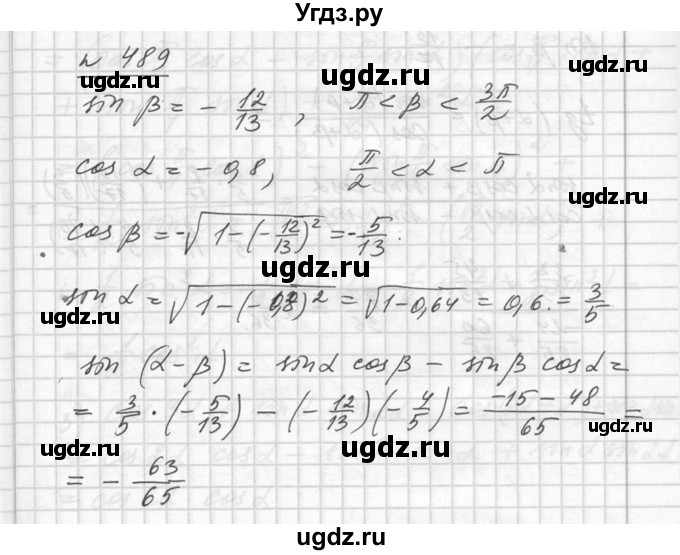 Угдз.ру
N 489
ugdz.ru ugdz.ru
sin β = - 12/13 , π < β < 3π/2
cos α = - 0,8, π/2 < α < π
ugdz.ru
cos β = -√(1-(-12/13)²) = - 5/13.
ugdz.ru
sin α = √(1-(-0,8)²) = √(1-0,64) = 0,6. = 3/5
ugdz.ru ugdz.ru
sin (α-β) = sinα cosβ - sinβ cosα =
= 3/5 · (- 5/13) - (- 12/13)(- 4/5) = (-15-48)/65 =
ugdz.ru ugdz.ru
= - 63/65
ugdz.ru